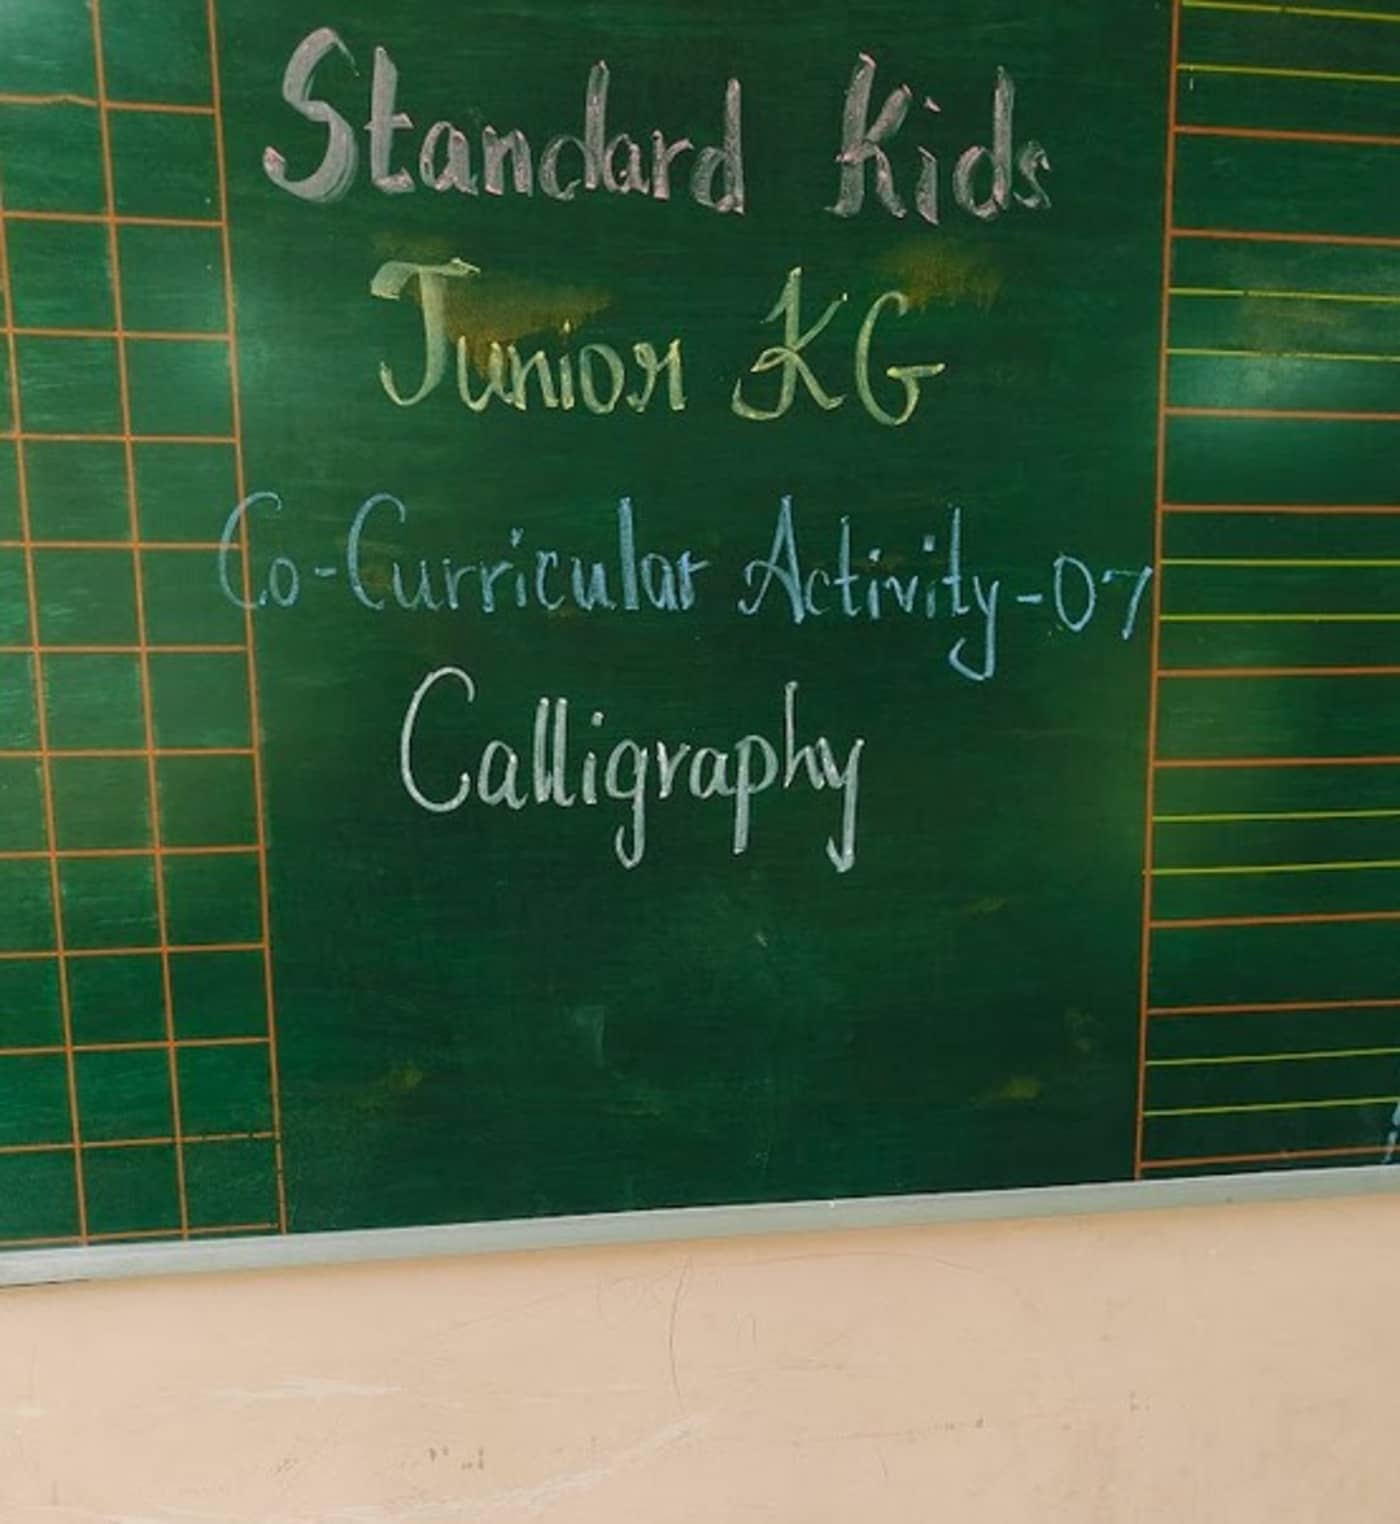 Standard Kids
Junior KG
Co-Curricular Activity-07
Calligraphy